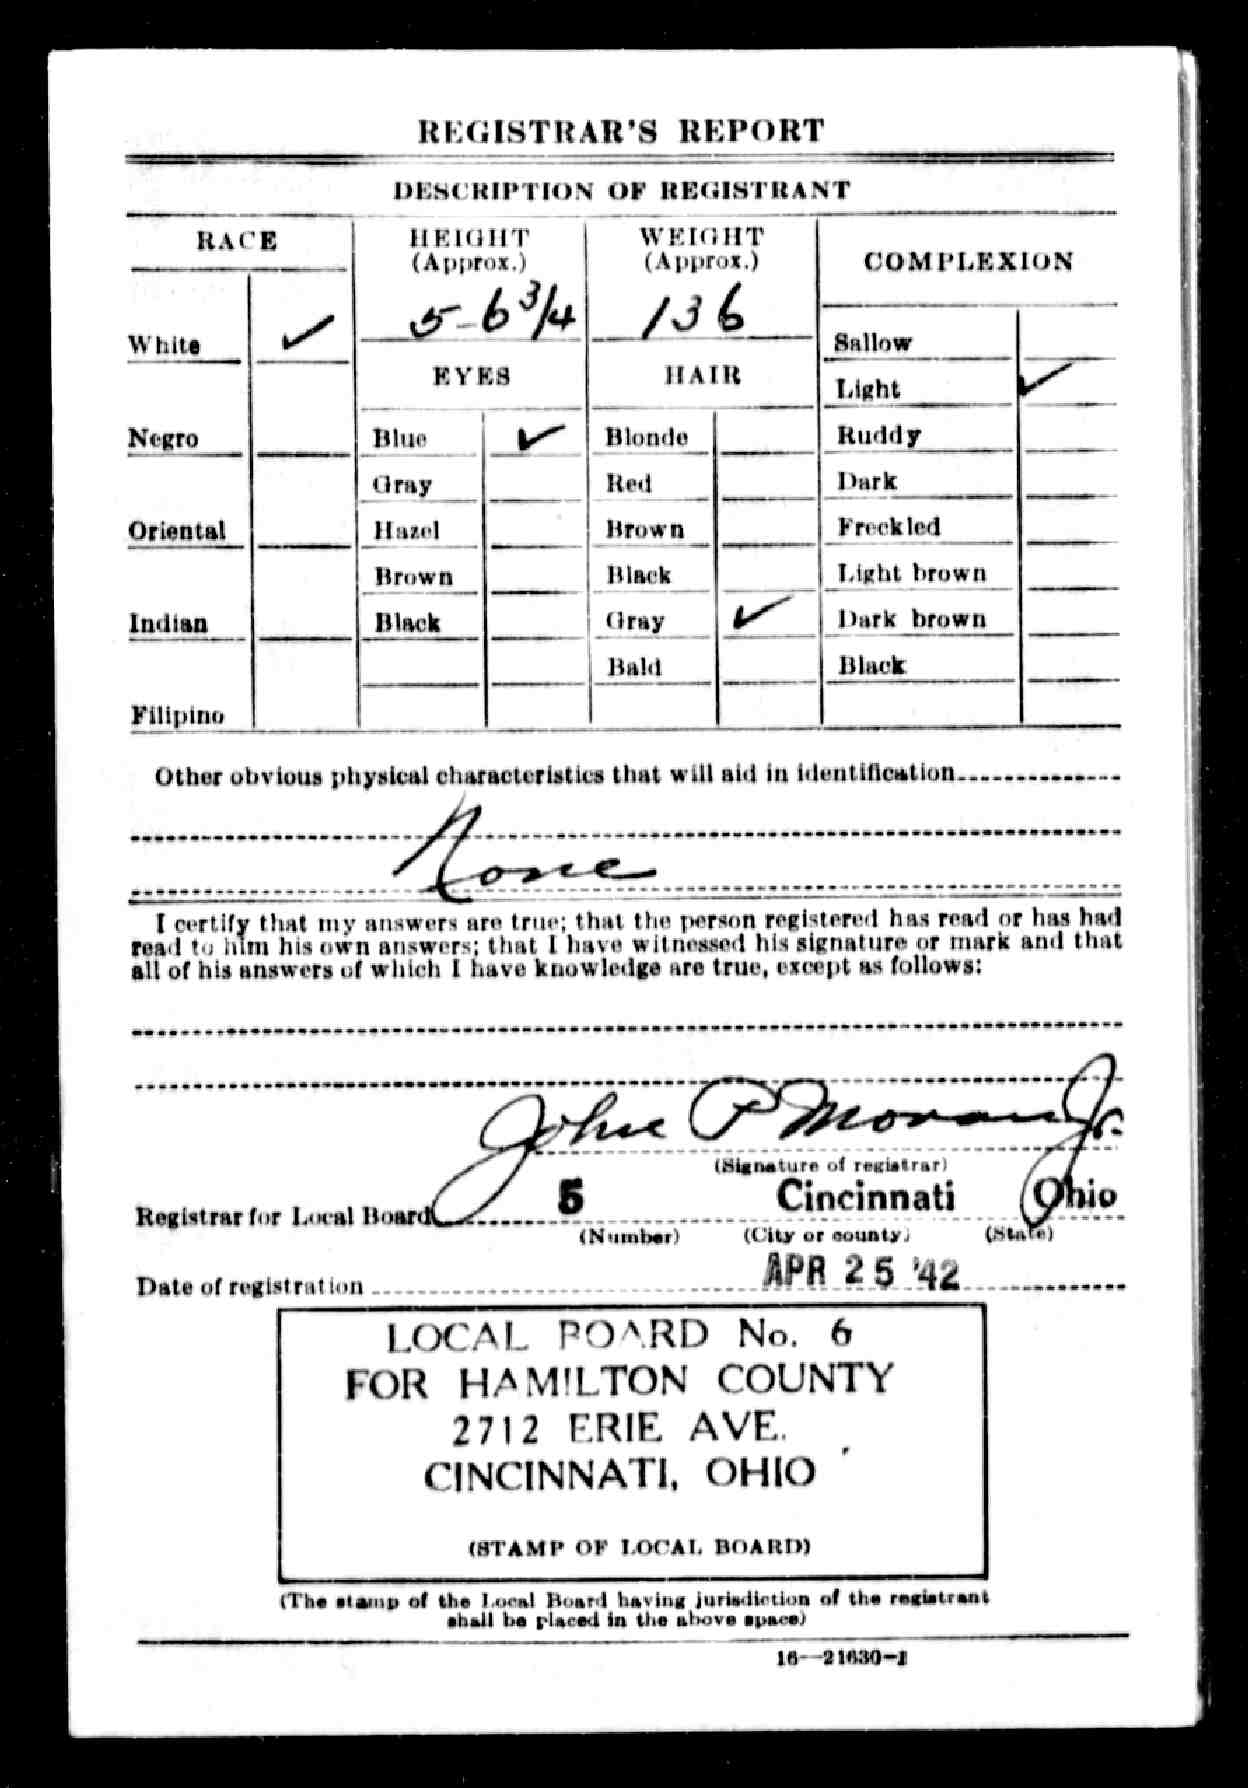 REGISTRAR'S REPORT
DESCRIPTION OF REGISTRANT
RACE
HEIGHT
(Approx.)
WEIGHT
(Approx.)
COMPLEXION
5-6 3/4
136
White ✓
Sallow
EYES
HAIR
Light ✓
Negro
Blue ✓
Blonde
Ruddy
Gray
Red
Dark
Oriental
Hazel
Brown
Freckled
Brown
Black
Light brown
Indian
Black
Gray ✓
Dark brown
Bald
Black
Filipino
Other obvious physical characteristics that will aid in identification
None
I certify that my answers are true; that the person registered has read or has had
read to him his own answers; that I have witnessed his signature or mark and that
all of his answers of which I have knowledge are true, except as follows:
John P Moran Jr.
(Signature of registrar)
Registrar for Local Board 5 Cincinnati Ohio
(Number) (City or county) (State)
Date of registration APR 25 '42
LOCAL BOARD No. 6
FOR HAMILTON COUNTY
2712 ERIE AVE.
CINCINNATI, OHIO
(STAMP OF LOCAL BOARD)
(The stamp of the Local Board having jurisdiction of the registrant
shall be placed in the above space)
16—21630-1